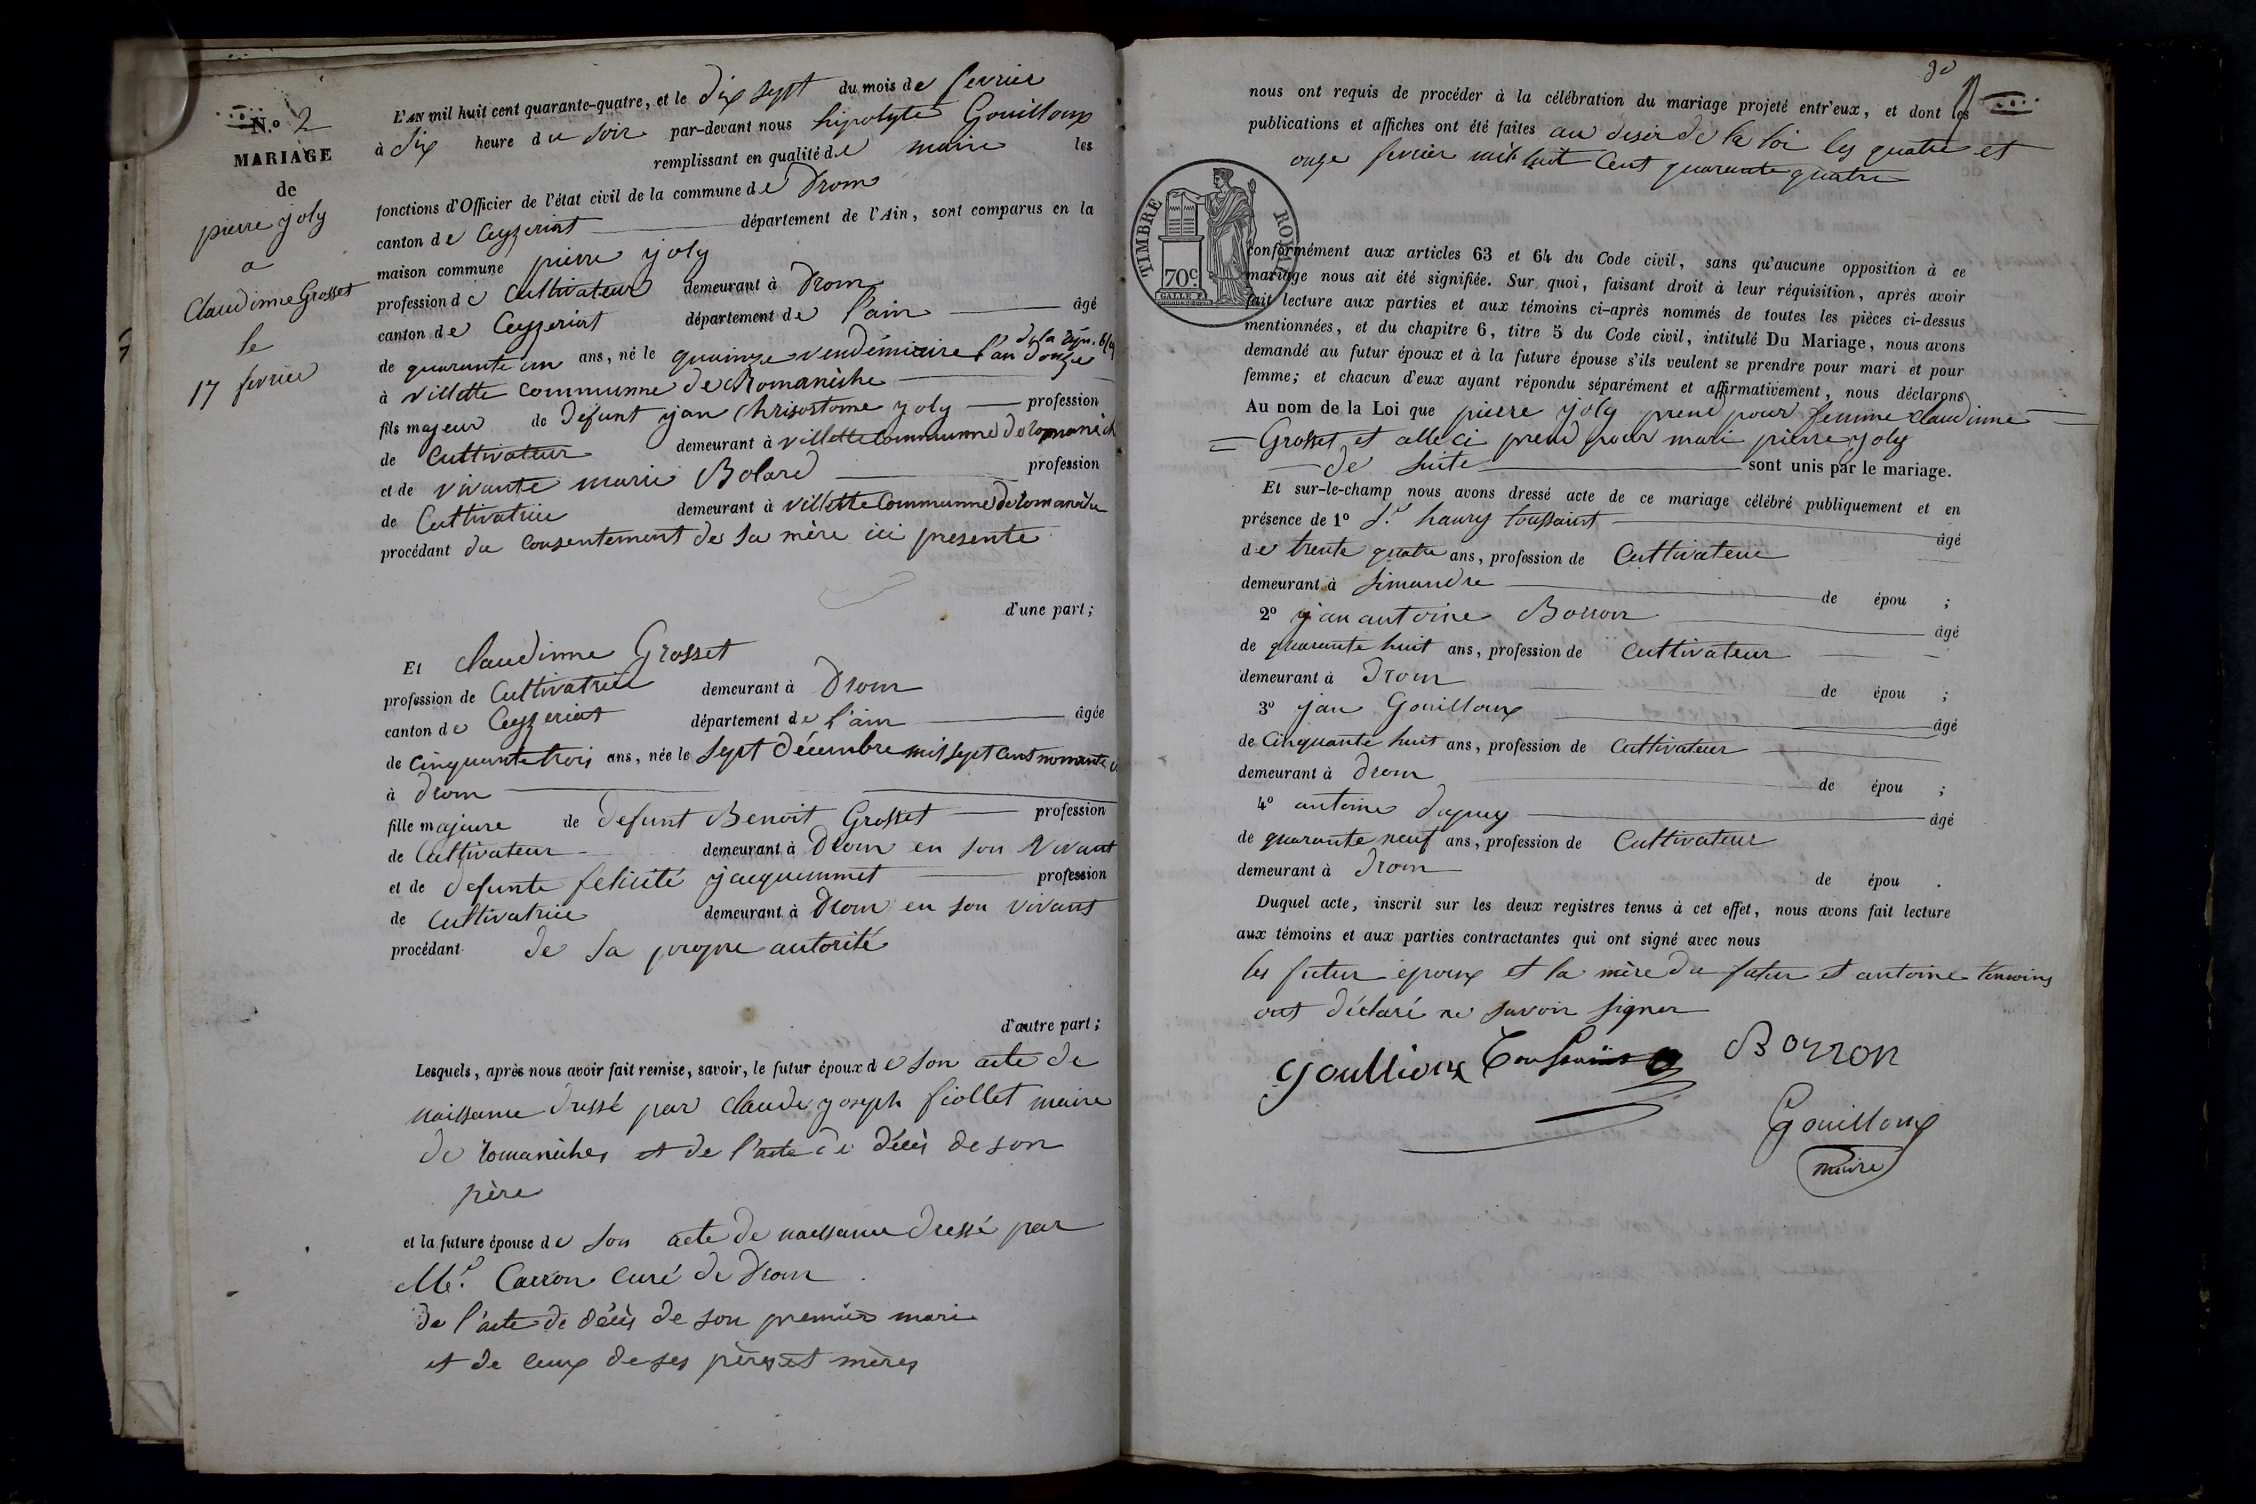 N.o 2
MARIAGE
de
pierre joly
a
Claudinne Grosset
le
17 fevrier
L'AN mil huit cent quarante-quatre, et le dix sept du mois de fevrier
à dix heure du soir par-devant nous hipolyte Gouilloux
remplissant en qualité de maire les
fonctions d'Officier de l'état civil de la commune de Drom
canton de Ceyzeriat département de l'Ain, sont comparus en la
maison commune pierre joly
profession de Cultivateur demeurant à Drom
canton de Ceyzeriat département de l'ain âgé
de la Rép.
de quarante un ans, né le quainze vendémiaire l'an douze
à villette communne de Romanèche
fils majeur de défunt jan Chrisostome joly profession
de Cultivateur demeurant à villette communne de romanèch
et de vivante marie Bolard profession
de Cultivatrice demeurant à villette Communne de romanèche
procédant du consentement de sa mère ici presente
d'une part;
Et Claudinne Grosset
profession de Cultivatrice demeurant à Drom
canton de Ceyzeriat département de l'ain âgée
de Cinquante trois ans, née le sept décembre mil sept cent nonante
à Drom
fille majeure de defunt Benoit Grosset profession
de Cultivateur demeurant à Drom en son vivant
et de defunte felicité jacquemmet profession
de Cultivatrice demeurant à Drom en son vivant
procédant de sa propre autorité
d'autre part;
Lesquels, après nous avoir fait remise, savoir, le futur époux de son acte de
naissance dressé par claude joseph fiollet maire
de romanèches et de l'acte de décès de son
père
et la future épouse de son acte de naissance dressé par
Mr. Carron curé de Drom
de l'acte de décès de son premier mari
et de ceux de ses pères et mères
30
nous ont requis de procéder à la célébration du mariage projeté entr'eux, et dont les
publications et affiches ont été faites au desir de la loi les quatre et
onze fevrier mil huit Cent quarante quatre
TIMBRE ROYAL
70c
conformément aux articles 63 et 64 du Code civil, sans qu'aucune opposition à ce
mariage nous ait été signifiée. Sur quoi, faisant droit à leur réquisition, après avoir
fait lecture aux parties et aux témoins ci-après nommés de toutes les pièces ci-dessus
mentionnées, et du chapitre 6, titre 5 du Code civil, intitulé Du Mariage, nous avons
demandé au futur époux et à la future épouse s'ils veulent se prendre pour mari et pour
femme; et chacun d'eux ayant répondu séparément et affirmativement, nous déclarons
Au nom de la Loi que pierre joly prend pour femme claudinne
Grosset et celle ci prend pour mari pierre joly
de suite sont unis par le mariage.
Et sur-le-champ nous avons dressé acte de ce mariage célébré publiquement et en
présence de 1o Sr. haury toussaint âgé
de trente quatre ans, profession de Cultivateur
demeurant à simandre de épou ;
2o jan antoine Borron âgé
de quarante huit ans, profession de Cultivateur
demeurant à Drom de épou ;
3o jan Gouilloux âgé
de Cinquante huit ans, profession de Cultivateur
demeurant à Drom de épou ;
4o antoine dupuy âgé
de quarante neuf ans, profession de Cultivateur
demeurant à Drom de épou .
Duquel acte, inscrit sur les deux registres tenus à cet effet, nous avons fait lecture
aux témoins et aux parties contractantes qui ont signé avec nous
les futur époux et la mère du futur et antoine temoins
ont déclaré ne savoir signer
Goullioux Tousaint Borron
Gouilloux
maire